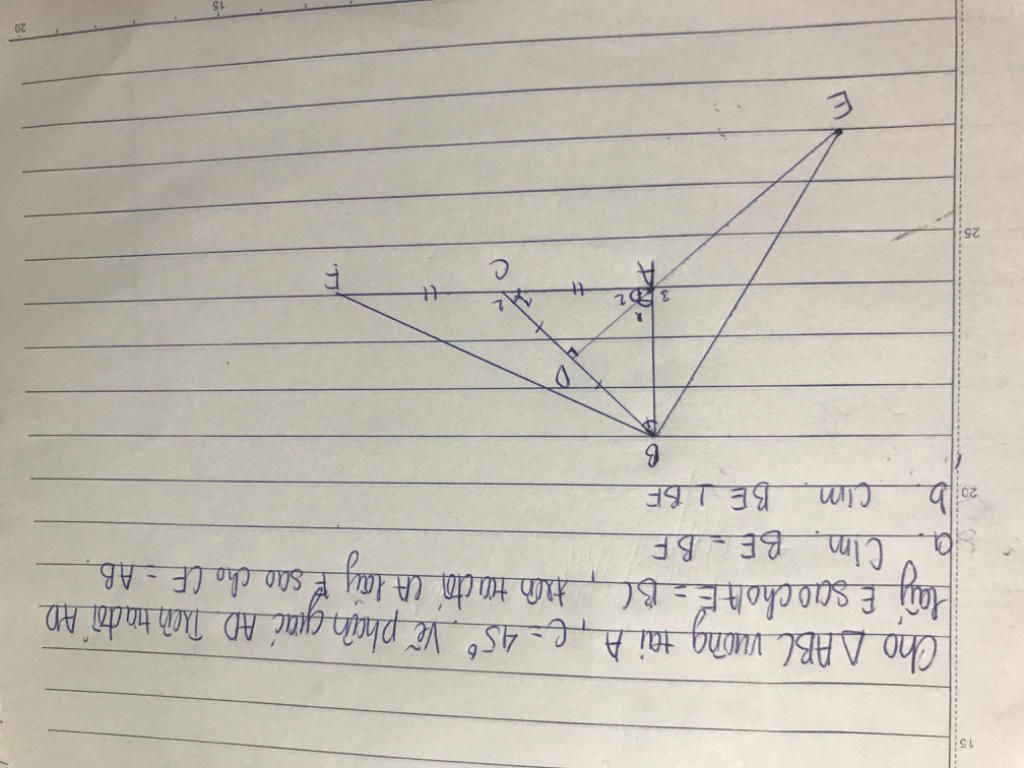 Cho △ABC vuông tại A, C = 45°. Vẽ phân giác AD Trên tia đối AD
lấy E sao cho AE = BC, trên tia đối CA lấy F sao cho CF = AB.
a. C/m. BE = BF
b. C/m. BE ⊥ BF
B
D
1
A 3 2
1 2
C
F
E
15
20
25
15
20